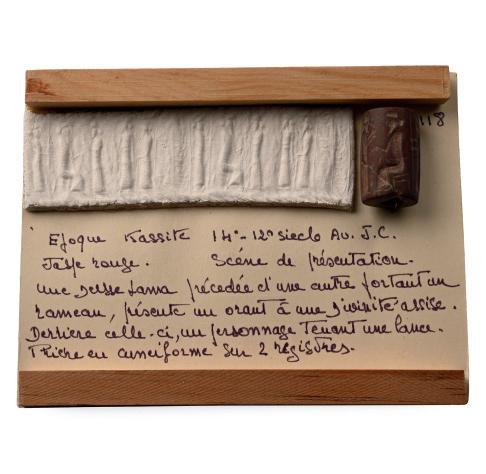 118
Epoque Kassite 14°-12° siecle Av. J.C.
Jaspe rouge. Scéne de présentation.
une Desse Lama précédée d'une autre portant un
rameau, présente un orant à une Divinité assise.
Derriere celle-ci, un personnage tenant une lance.
1 Riche en cuneiforme sur 2 régistres.